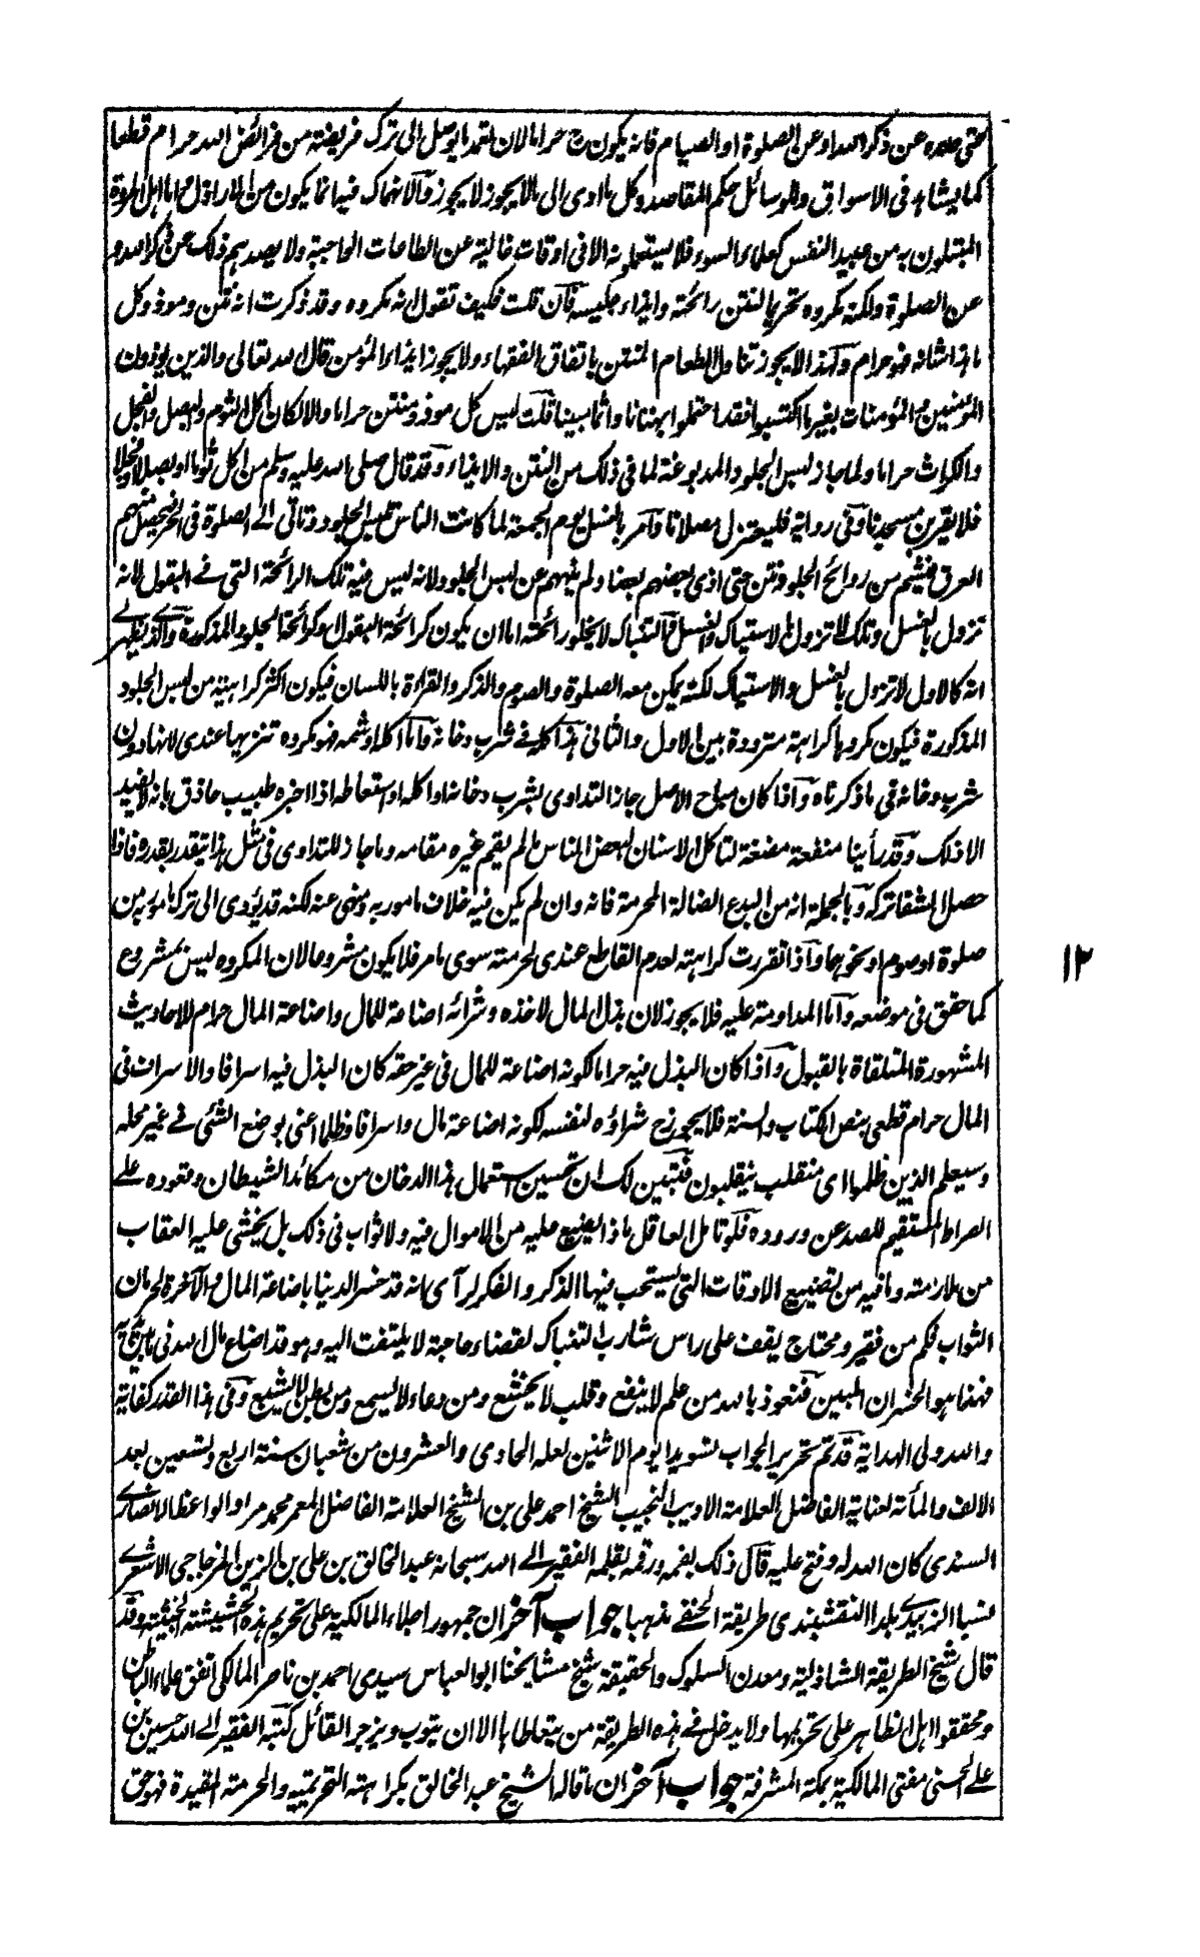 حتى صده عن ذكر الله او عن الصلوة او الصيام فانه يكون ح حراما لان تعمد ما يوصل الى ترك فريضة من فرائض الله حرام قطعا
كما يشاهد فى الاسواق وللوسائل حكم المقاصد وكل ما ادى الى ما لا يجوز لا يجوز والانهماك فيه انما يكون من الاراذل واما اهل المروة
المبتلون به من عبيد النفس كعلماء السوء فلا يستعملونه الا فى اوقات خالية عن الطاعات الواجبة ولا يصدهم ذلك عن ذكر الله و
عن الصلوة ولكنه مكروه تحريما لنتن رائحته وايذاء جليسه فان قلت فكيف تقول انه مكروه وقد ذكرت انه نتن وموذ وكل
ما هذا شانه فهو حرام ولهذا لا يجوز تناول الطعام المنتن باتفاق الفقهاء ولا يجوز ايذاء المؤمن قال الله تعالى والذين يوذون
المؤمنين والمؤمنات بغير ما اكتسبوا فقد احتملوا بهتانا واثما مبينا قلت ليس كل موذ ومنتن حراما والا لكان اكل الثوم والبصل والفجل
والكراث حراما ولما جاز لبس الجلود المدبوغة لما فى ذلك من النتن والايذاء وقد قال صلى الله عليه وسلم من اكل ثوما او بصلا او فجلا
فلا يقربن مسجدنا وفى رواية فليعتزل مصلانا وامر بالغسل يوم الجمعة لما كانت الناس تلبس الجلود وتاتى الى الصلوة فى الحر فيحصل منهم
العرق فيشم من روائح الجلود نتن حتى اذى بعضهم بعضا ولم ينههم عن لبس الجلود ولانه ليس فيه تلك الرائحة التى فى البقول لانه
تزول بالغسل وتلك لا تزول الا بالاستياك والغسل فالتنباك لا يخلو رائحته اما ان يكون كرائحة البقول او كرائحة الجلود المذكورة والذى يظهر لى
انه كالاول لا تزول بالغسل والاستياك لكنه يمكن معه الصلوة والصوم والذكر والقراءة باللسان فيكون اكثر كراهية من لبس الجلود
المذكورة فيكون مكروها كراهة مترددة بين الاول والثانى هذا كله فى شرب دخانه واما اكله او شمه فهو مكروه تنزيها عندى لانهما دون
شرب دخانه فى ما ذكرناه واذا كان مباح الاصل جاز التداوى بشرب دخانه او اكله او استعاطه اذا اخبره طبيب حاذق بانه لا يفيد
الا ذلك وقد رأينا منفعة مضغه لتاكل الاسنان لبعض الناس لم يقم غيره مقامه وما جاز للتداوى فى مثل هذا يتقدر بقدره فاذا
حصل الشفا تركه وبالجملة انه من البدع الضالة المحرمة فانه وان لم يكن فيه خلاف مامور به ومنهى عنه لكنه قد يؤدى الى ترك مامور به من
صلوة او صوم او نحوهما واذا تقررت كراهته لعدم القاطع عندى لحرمته سوى ما مر فلا يكون مشروعا لان المكروه ليس بمشروع
كما حقق فى موضعه واما المداومة عليه فلا يجوز لان بذل المال لاخذه وشرائه اضاعة للمال واضاعة المال حرام للاحاديث
المشهورة المتلقاة بالقبول واذا كان البذل فيه حراما لكونه اضاعة للمال فى غير حقه كان البذل فيه اسرافا والاسراف فى
المال حرام قطعى بنص الكتاب والسنة فلا يجوز ح شراؤه لنفسه لكونه اضاعة مال واسرافا وظلما اعنى بوضع الشئى فى غير محله
وسيعلم الذين ظلموا اى منقلب ينقلبون فتبين لك ان تحسين استعمال هذا الدخان من مكائد الشيطان وقعوده على
الصراط المستقيم للصد عن وروده فلو تامل العاقل ماذا يضيع عليه من الاموال فيه ولا ثواب فى ذلك بل يخشى عليه العقاب
من ملازمته وما فيه من تضييع الاوقات التى يستحب فيها الذكر والفكر لرأى انه قد خسر الدنيا باضاعة المال والآخرة لحرمان
الثواب فكم من فقير ومحتاج يقف على راس شارب التنباك لقضاء حاجة لا يلتفت اليه وهو قد اضاع مال الله فى
فهذا هو الخسران المبين فنعوذ بالله من علم لا ينفع وقلب لا يخشع ومن دعاء لا يسمع ومن بطن لا يشبع وفى هذا القدر كفاية
والله ولى الهداية قد تم تحرير الجواب تسويدا يوم الاثنين لعله الحادى والعشرون من شعبان سنة اربع وتسعين بعد
الالف والمأتة لعناية الفاضل العلامة الاديب النجيب الشيخ احمد على بن الشيخ العلامة الفاضل المعمر محمد مراد الواعظ الانصارى
السندى كان الله له وفتح عليه قال ذلك بفمه ورقمه بقلمه الفقير الى الله سبحانه عبد الخالق بن على بن الزين المزجاجى الاشعرى
نسبا الزبيدى بلدا النقشبندى طريقة الحنفى مذهبا جواب آخر ان جمهور اجلاء المالكية على تحريم هذه الحشيشة الخبيثة وقد
قال شيخ الطريقة الشاذلية ومعدن السلوك والحقيقة شيخ مشايخنا ابو العباس سيدى احمد بن ناصر المالكى اتفق علماء الباطن
ومحققوا اهل الظاهر على تحريمها ولا يدخل فى هذه الطريقة من يتعاطاها الا ان يتوب ويزجر القائل كتبه الفقير الى الله حسين بن
على الحسنى مفتى المالكية بمكة المشرفة جواب آخر ان ما قاله الشيخ عبد الخالق بكراهته التحريمية والحرمة المقيدة فهو حق
١٢